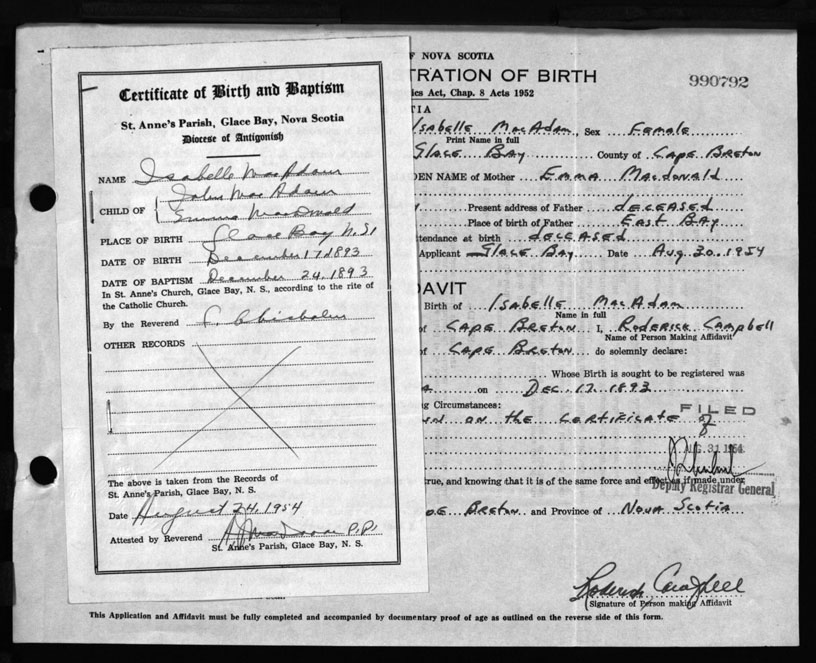 Certificate of Birth and Baptism
St. Anne's Parish, Glace Bay, Nova Scotia
Diocese of Antigonish
NAME Isabelle MacAdam
CHILD OF John MacAdam
Emma MacDonald
PLACE OF BIRTH Glace Bay N.S.
DATE OF BIRTH December 17 1893
DATE OF BAPTISM December 24, 1893
In St. Anne's Church, Glace Bay, N. S., according to the rite of
the Catholic Church.
By the Reverend Chisholm
OTHER RECORDS
The above is taken from the Records of
St. Anne's Parish, Glace Bay, N. S.
Date August 24, 1954
Attested by Reverend P.P.
St. Anne's Parish, Glace Bay, N. S.
F NOVA SCOTIA
TRATION OF BIRTH
990792
ics Act, Chap. 8 Acts 1952
TIA
Isabelle MacAdam, Sex Female
Print Name in full
Glace Bay County of Cape Breton
DEN NAME of Mother Emma Macdonald
Present address of Father deceased
Place of birth of Father East Bay
ttendance at birth deceased
Applicant Glace Bay Date Aug. 30. 1954
DAVIT
Birth of Isabelle MacAdam
Name in full
of Cape Breton I, Roderick Campbell
Name of Person Making Affidavit
of Cape Breton do solemnly declare:
Whose Birth is sought to be registered was
on Dec. 17. 1893
g Circumstances:
FILED
wn on the certificate of
AUG 31 1954
true, and knowing that it is of the same force and effect as if made under
Deputy Registrar General
pe Breton and Province of Nova Scotia
Roderick Campbell
(Signature of Person making Affidavit
This Application and Affidavit must be fully completed and accompanied by documentary proof of age as outlined on the reverse side of this form.